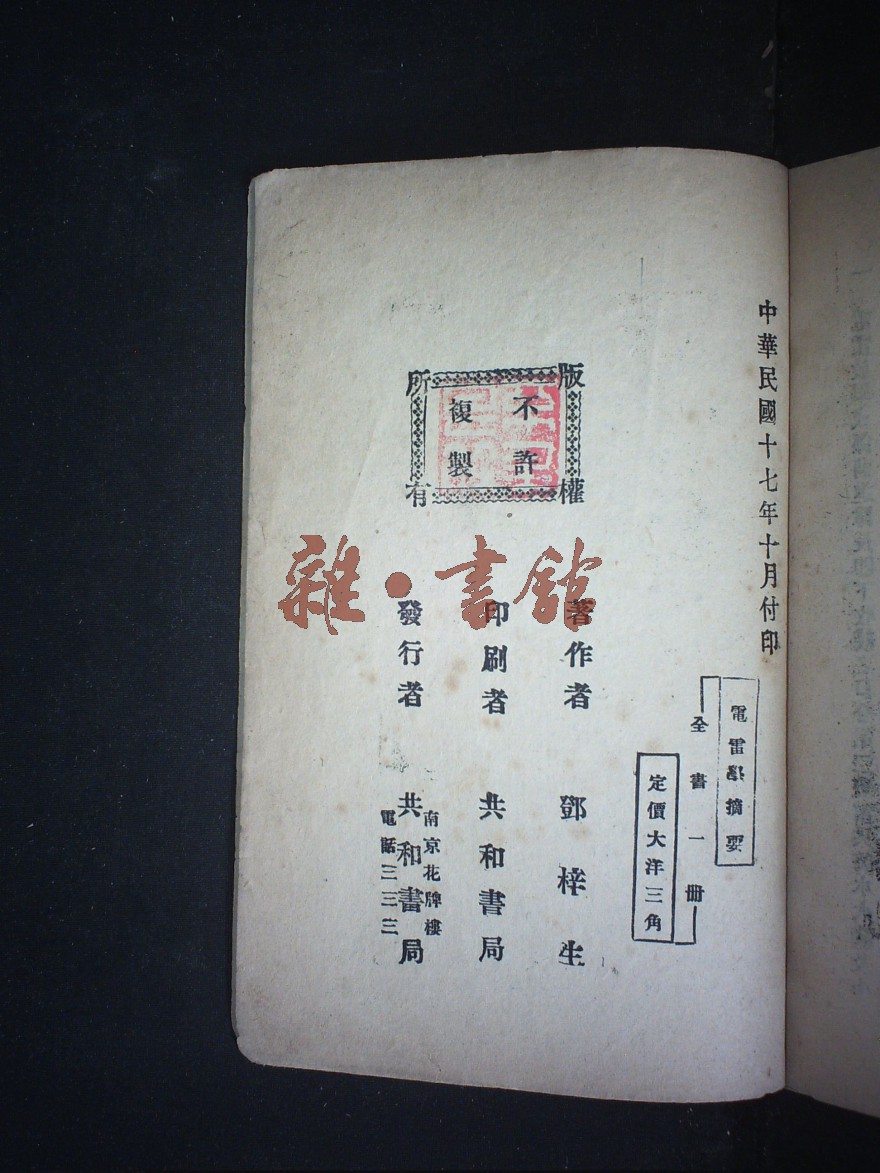 中華民國十七年十月付印
電雷學摘要
全書一冊
定價大洋三角
版權
所有
不許
複製
著作者 鄧梓生
印刷者 共和書局
發行者 共和書局
南京花牌樓
電話三三三
雜·書館